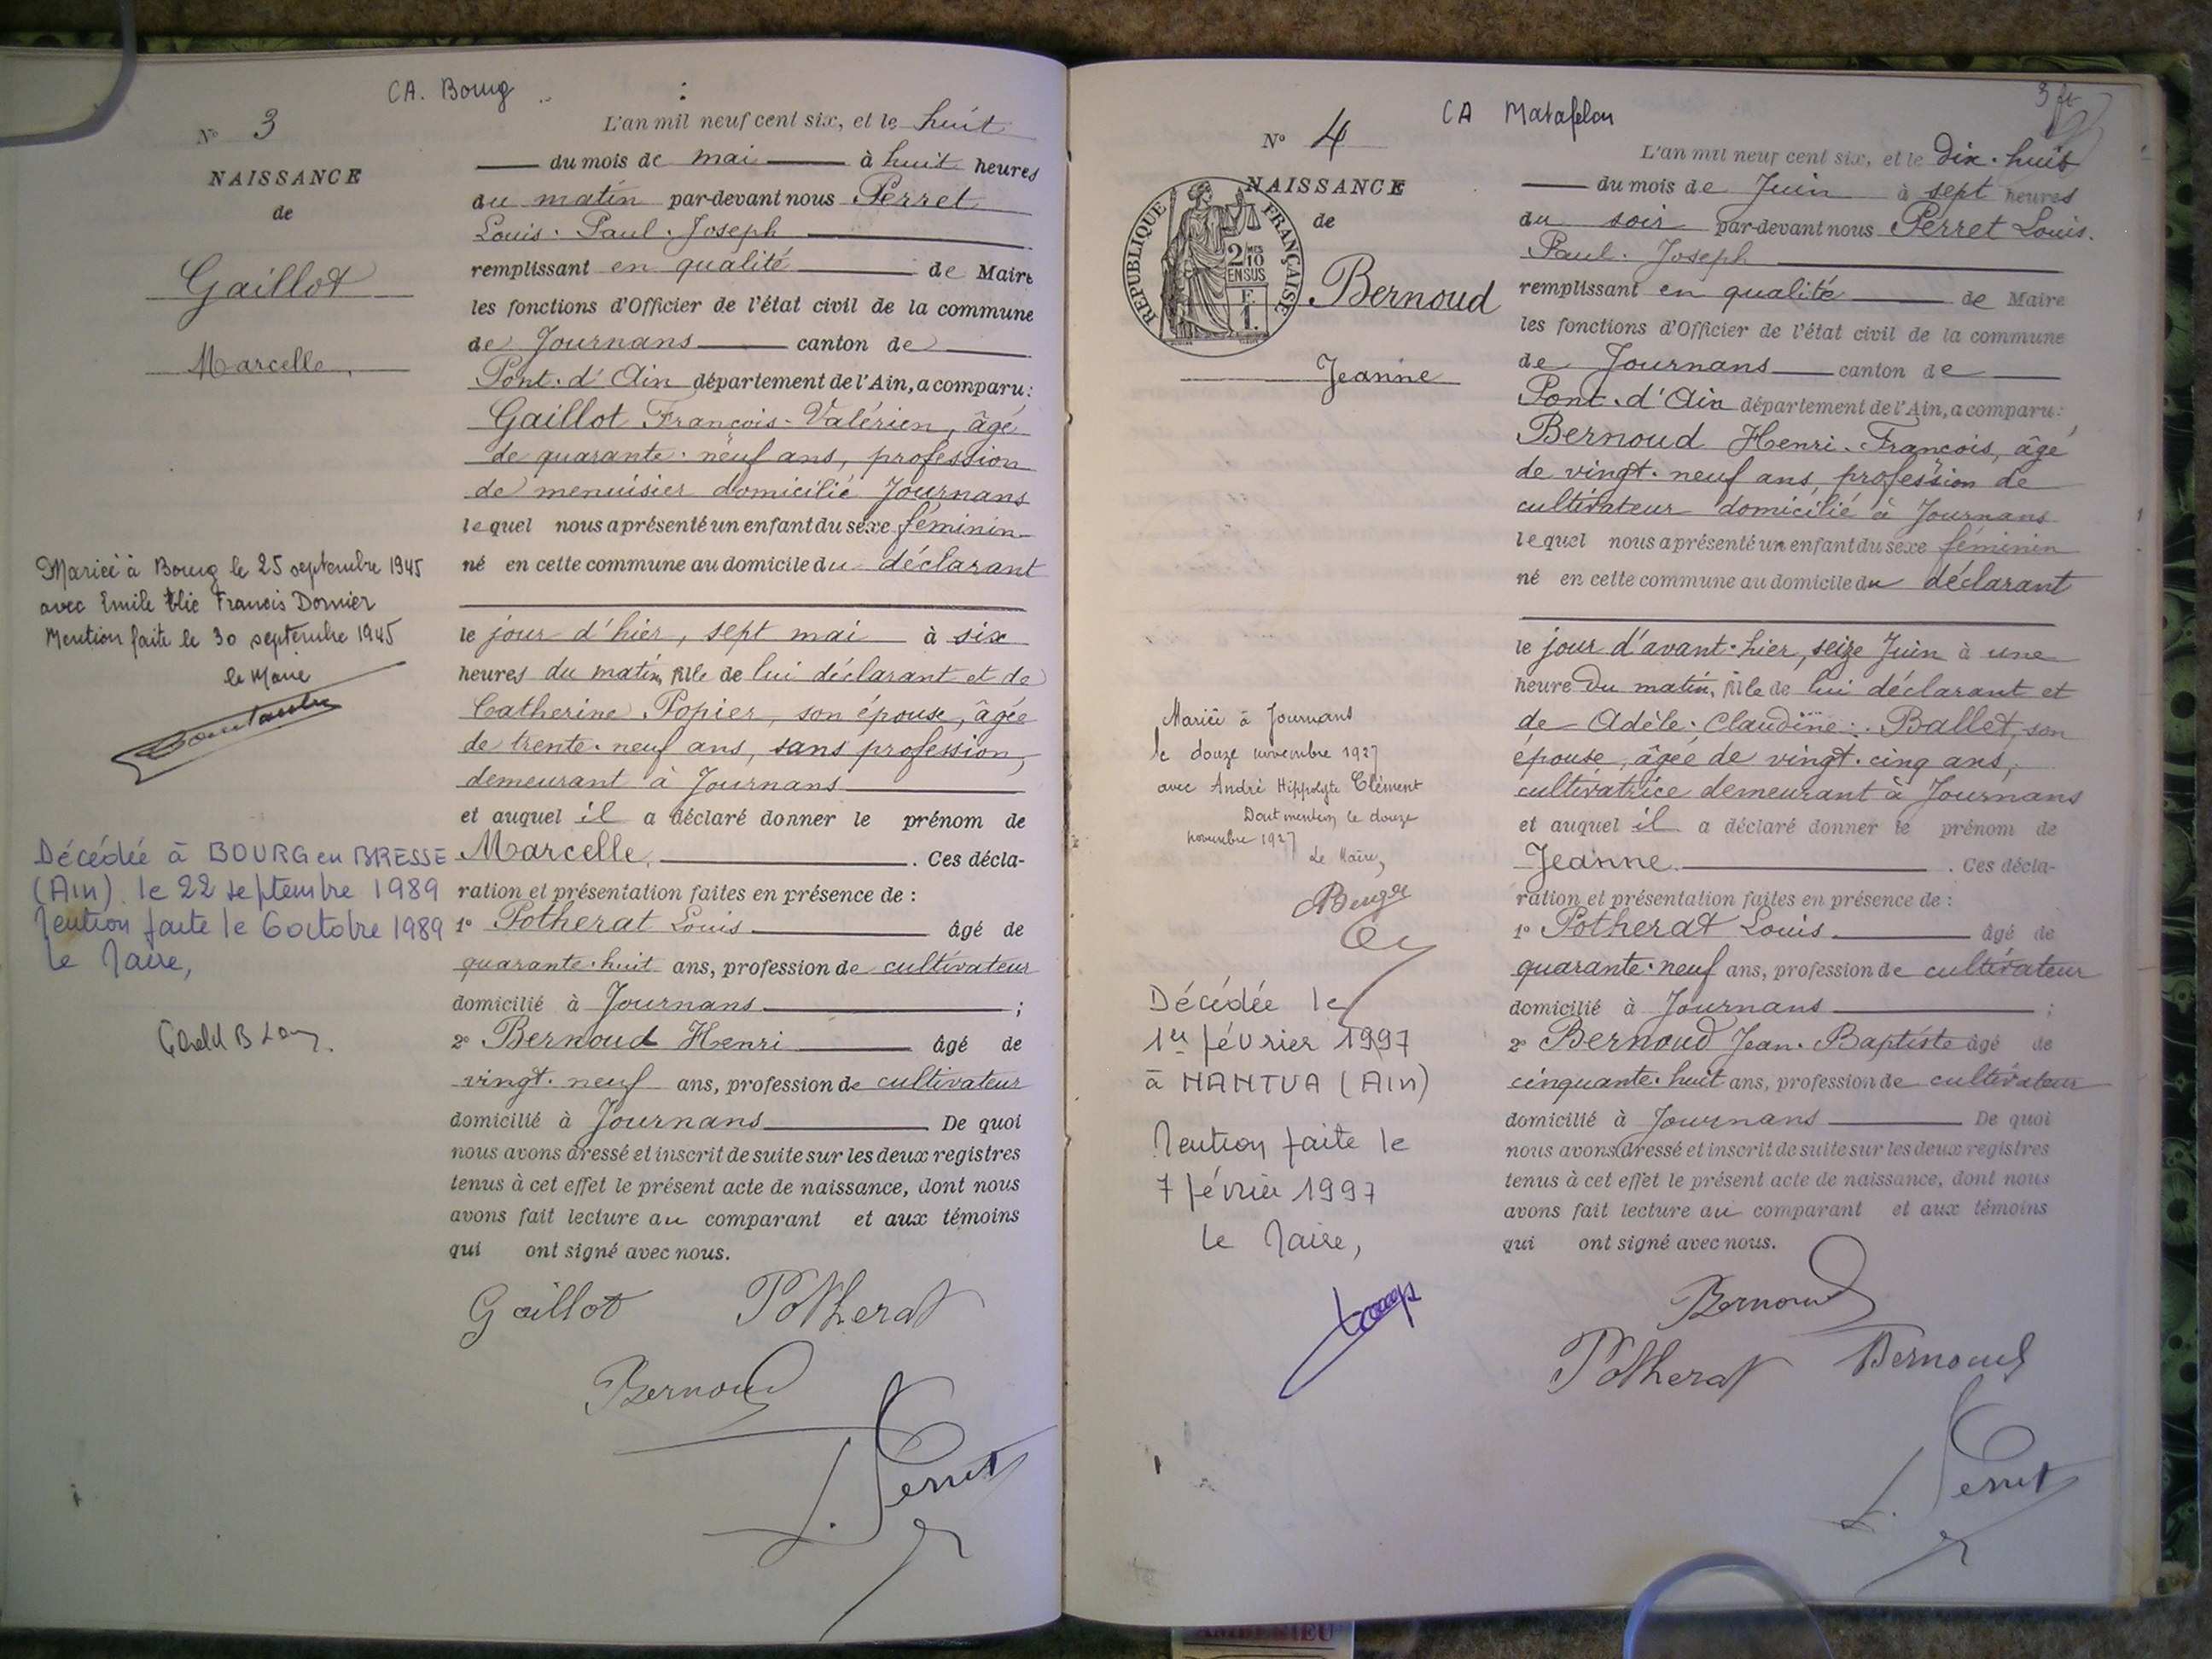 CA. Bourg
N° 3
NAISSANCE
de
Gaillot
Marcelle
Mariée à Bourg le 25 septembre 1945
avec Emile Elie Francis Dornier
Mention faite le 30 septembre 1945
le Maire
Décédée à BOURG en BRESSE
(Ain) le 22 septembre 1989
Mention faite le 6 octobre 1989
Le Maire,
L'an mil neuf cent six, et le huit
du mois de mai à huit heures
du matin par-devant nous Perret
Louis. Paul. Joseph
remplissant en qualité de Maire
les fonctions d'Officier de l'état civil de la commune
de Journans canton de
Pont. d'Ain département de l'Ain, a comparu :
Gaillot François-Valérien, âgé
de quarante. neuf ans, profession
de menuisier domicilié Journans
lequel nous a présenté un enfant du sexe féminin
né en cette commune au domicile du déclarant
le jour d'hier, sept mai à six
heures du matin, fille de lui déclarant et de
Catherine Popier, son épouse, âgée
de trente. neuf ans, sans profession,
demeurant à Journans
et auquel il a déclaré donner le prénom de
Marcelle. Ces décla-
ration et présentation faites en présence de :
1° Potherat Louis âgé de
quarante. huit ans, profession de cultivateur
domicilié à Journans ;
2° Bernoud Henri âgé de
vingt. neuf ans, profession de cultivateur
domicilié à Journans De quoi
nous avons dressé et inscrit de suite sur les deux registres
tenus à cet effet le présent acte de naissance, dont nous
avons fait lecture au comparant et aux témoins
qui ont signé avec nous.
Gaillot Potherat
Bernoud
L. Perret
CA Matafelon
3 ft
N° 4
NAISSANCE
de
RÉPUBLIQUE FRANÇAISE
2 MES
10
EN SUS
F.
1.
Bernoud
Jeanne
Mariée à Journans
le douze novembre 1927
avec André Hippolyte Clément
Dont mention le douze
novembre 1927
Le Maire,
Décédée le
1er février 1997
à NANTUA (Ain)
Mention faite le
7 février 1997
Le Maire,
L'an mil neuf cent six, et le dix. huit
du mois de Juin à sept heures
du soir par-devant nous Perret Louis.
Paul. Joseph
remplissant en qualité de Maire
les fonctions d'Officier de l'état civil de la commune
de Journans canton de
Pont. d'Ain département de l'Ain, a comparu :
Bernoud Henri. François, âgé
de vingt. neuf ans, profession de
cultivateur domicilié à Journans
lequel nous a présenté un enfant du sexe féminin
né en cette commune au domicile du déclarant
le jour d'avant. hier, seize Juin à une
heure du matin, fille de lui déclarant et
de Adèle. Claudine. Ballet, son
épouse, âgée de vingt. cinq ans,
cultivatrice demeurant à Journans
et auquel il a déclaré donner le prénom de
Jeanne. Ces décla-
ration et présentation faites en présence de :
1° Potherat Louis âgé de
quarante. neuf ans, profession de cultivateur
domicilié à Journans ;
2° Bernoud Jean. Baptiste âgé de
cinquante. huit ans, profession de cultivateur
domicilié à Journans De quoi
nous avons dressé et inscrit de suite sur les deux registres
tenus à cet effet le présent acte de naissance, dont nous
avons fait lecture au comparant et aux témoins
qui ont signé avec nous.
Bernoud
Potherat Bernoud
L. Perret
AMBERIEU